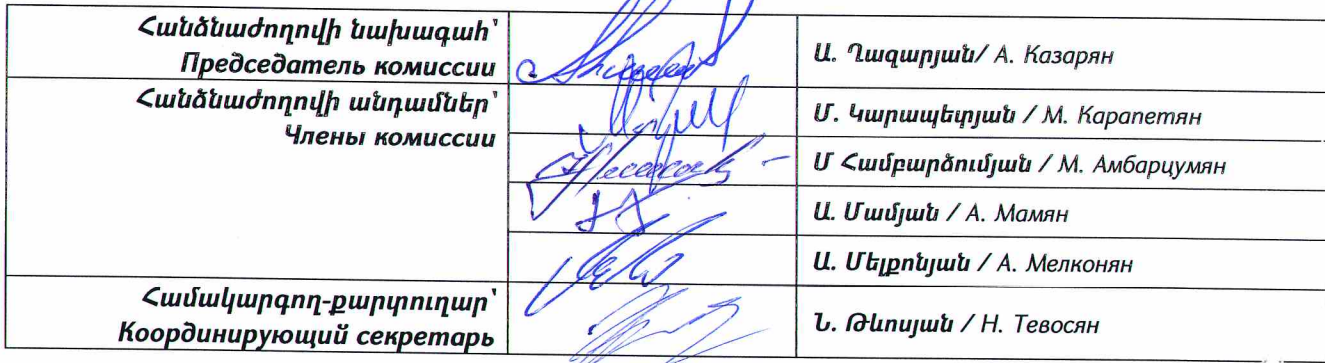 Հանձնաժողովի նախագահ՝
Председатель комиссии
Ա. Ղազարյան/ А. Казарян
Հանձնաժողովի անդամներ՝
Члены комиссии
Մ. Կարապետյան / М. Карапетян
Մ Համբարձումյան / М. Амбарцумян
Ա. Մամյան / А. Мамян
Ա. Մելքոնյան / А. Мелконян
Համակարգող-քարտուղար՝
Координирующий секретарь
Ն. Թևոսյան / Н. Тевосян